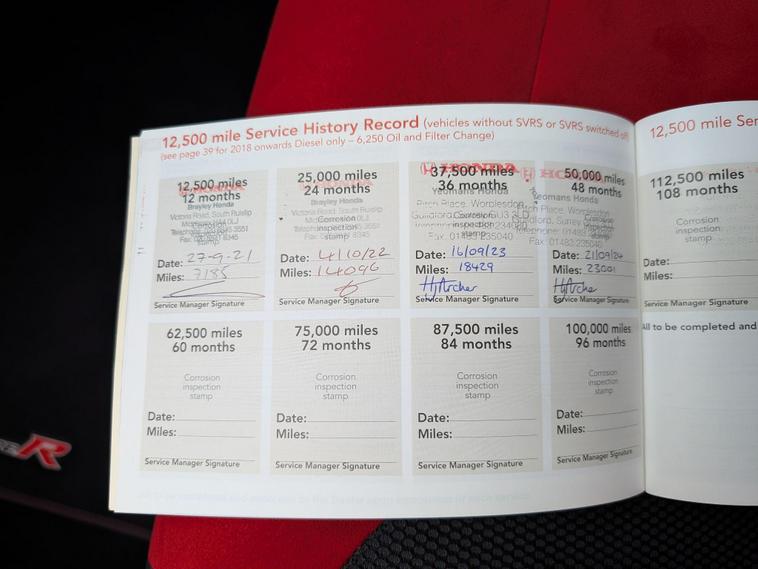 12,500 mile Service History Record (vehicles without SVRS or SVRS switched off
(see page 39 for 2018 onwards Diesel only – 6,250 Oil and Filter Change)
12,500 miles
12 months
HONDA
Brayley Honda
Victoria Road, South Ruislip
stamp
Date: 27-9-21
Miles: 7185
Service Manager Signature
25,000 miles
24 months
Brayley Honda
Victoria Road, South Ruislip
Corrosion
inspection
stamp
Date: 4/10/22
Miles: 14096
Service Manager Signature
HONDA
37,500 miles
36 months
Yeomans Honda
Perch Place, Worplesdon
Guildford, GU3 3LD
Corrosion
inspection
stamp
Fax: 01483 235040
Date: 16/09/23
Miles: 18429
HJArcher
Service Manager Signature
HONDA
50,000 miles
48 months
Yeomans Honda
Perch Place, Worplesdon
Guildford, Surrey
Fax: 01483 235040
Date: 21/09/24
Miles: 23001
HJArcher
Service Manager Signature
62,500 miles
60 months
Corrosion
inspection
stamp
Date:
Miles:
Service Manager Signature
75,000 miles
72 months
Corrosion
inspection
stamp
Date:
Miles:
Service Manager Signature
87,500 miles
84 months
Corrosion
inspection
stamp
Date:
Miles:
Service Manager Signature
100,000 miles
96 months
Corrosion
inspection
stamp
Date:
Miles:
Service Manager Signature
12,500 mile Ser
112,500 miles
108 months
Corrosion
inspection
stamp
Date:
Miles:
Service Manager Signature
All to be completed and
R